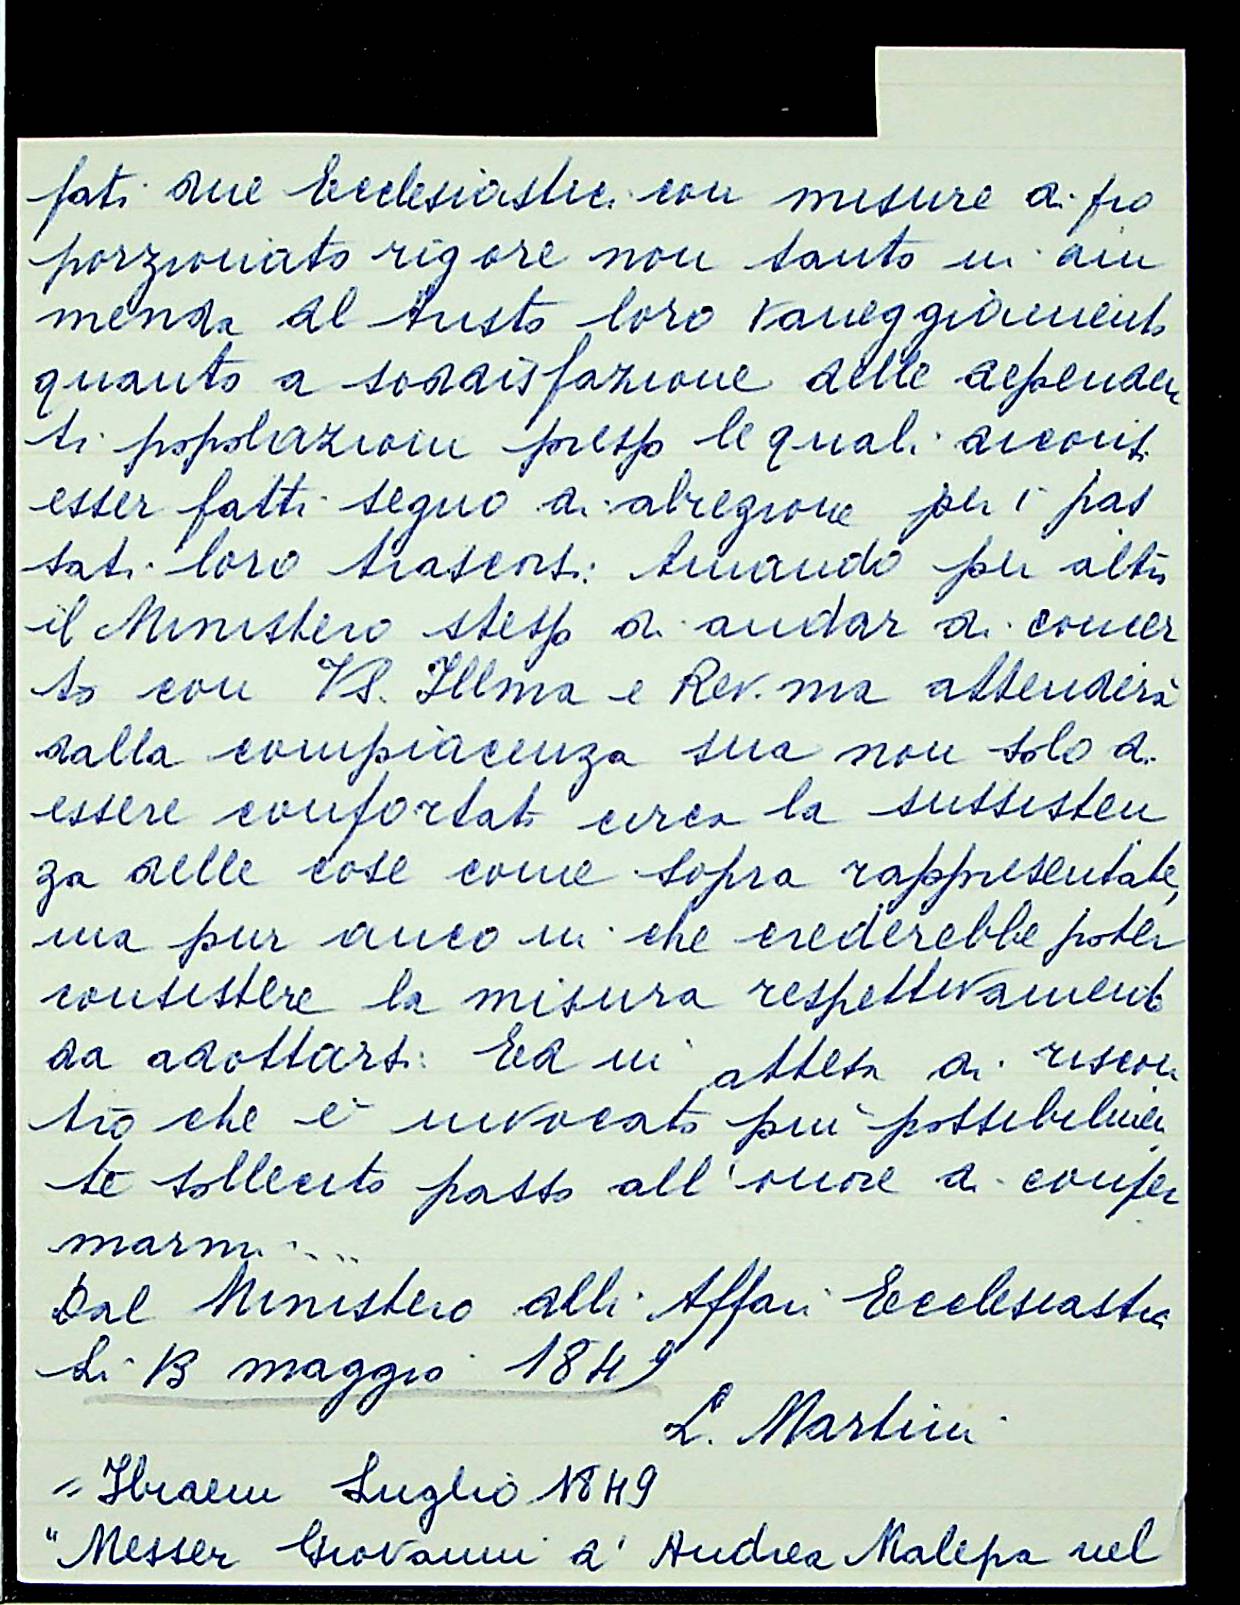 fati due Ecclesiastici con misure di pro
porzionato rigore non tanto in am
menda al tristo loro vaneggiamento
quanto a soddisfazione delle dependen
ti popolazioni presso le quali diconsi
esser fatti segno di abiezione per i pas
sati loro trascorsi: Amando per altro
il Ministero stesso di andar di concer
to con VS. Illma e Rev.ma attenderà
dalla compiacenza sua non solo di
essere confortato circa la sussisten
za delle cose come sopra rappresentate,
ma pur anco in che crederebbe poter
consistere la misura respettivamente
da adottarsi: Ed in attesa di riscon
tro che è invocato più possibilmen
te sollecito passo all'onore di confer
marmi....
Dal Ministero alli Affari Ecclesiastici
Li 13 maggio 1849
L. Martini
= Ibidem Luglio 1849
"Messer Giovanni d' Andrea Malepa nel